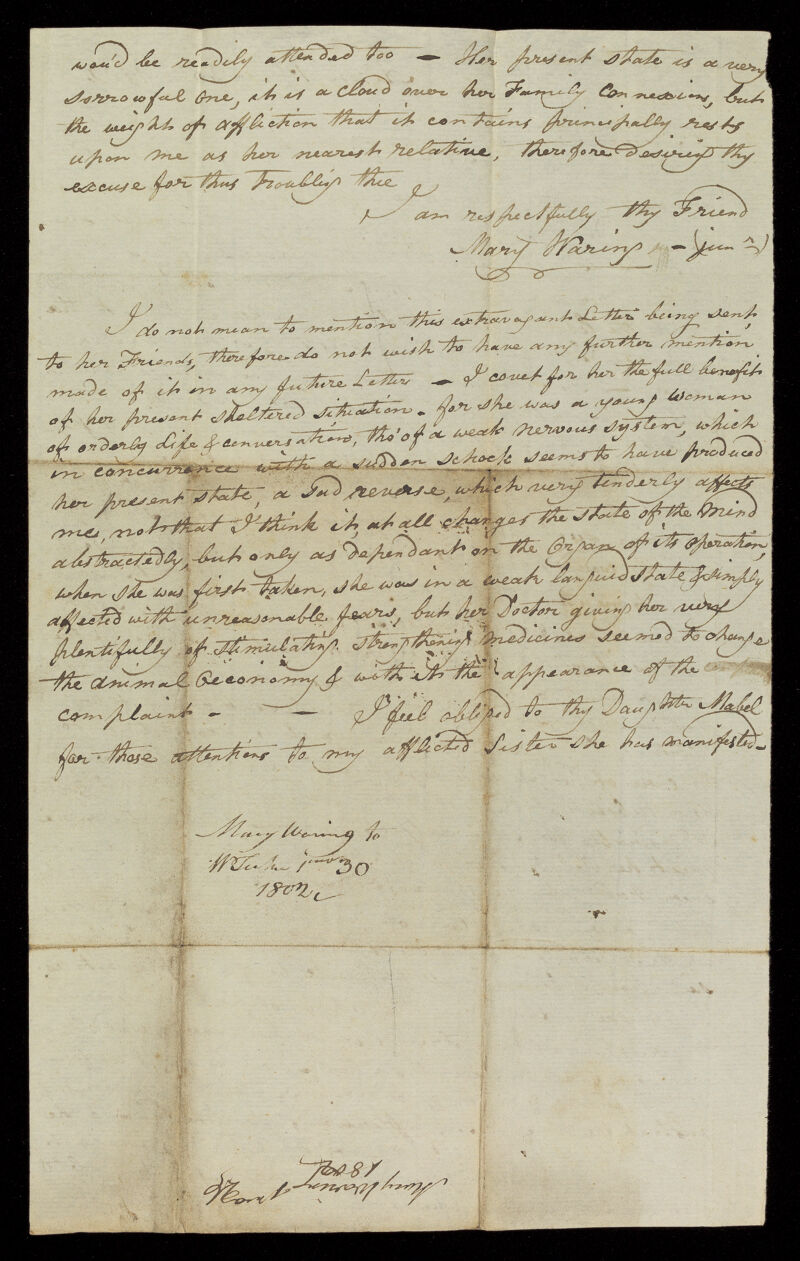 would be readily attended too — Her present state is a very
sorrowful one, it is a cloud over her Family Connexions, but
the weight of affliction that it contains principally rests
upon me as her nearest relative, therefore desiring thy
excuse for thus troubling thee
I am respectfully thy Friend
Mary Waring — (junr)
I do not mean to mention this extravagant Letter being sent
to her Friends, therefore do not wish to have any further mention
made of it in any future Letter — I covet for her the full benefit
of her present sheltered situation - for she was a young woman
of orderly Life & conversation, tho' of a weak nervous system, which
in concurrence with a sudden schock seems to have produced
her present state, a sad reverse, which very tenderly affects
me, not that I think it, at all changes the state of the Mind
abstractedly, but only as dependant on the Organ of its operation,
when she was first taken, she was in a weak languid state & simply
affected with unreasonable fears, but her Doctor giving her very
plentifully of stimulating strengthening medicines seemed to change
the animal Oeconomy & with it the appearance of the
complaint - — I feel obliged to thy Daughter Mabel
for those attentions to my afflicted Sister she has manifested -
Mary Waring to
W Tuke 30
1802